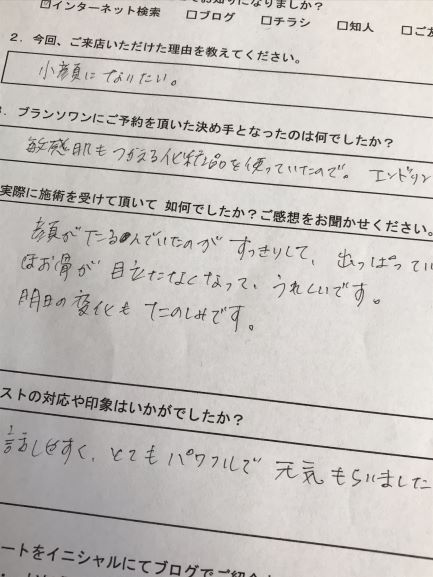 お知りになりましたか？
☑インターネット検索 □ブログ □チラシ □知人 □ご友
2．今回、ご来店いただけた理由を教えてください。
小顔になりたい。
3．ブランソワンにご予約を頂いた決め手となったのは何でしたか？
敏感肌もつかえる化粧品を使っていたので。エンドリン
実際に施術を受けて頂いて 如何でしたか？ご感想をお聞かせください。
顔がたるんでいたのが すっきりして、出っぱってい
ほお骨が 目立たなくなって、うれしいです。
明日の変化も たのしみです。
ストの対応や印象はいかがでしたか？
話しやすく、とても パワフルで 元気もらいました
ートをイニシャルにてブログでご紹介